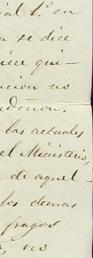 ial 1.° en
a se dice
iére qui-
ncion no
ndieron.
las actuales
el Ministerio,
de aquel-
los demas
fragos
no